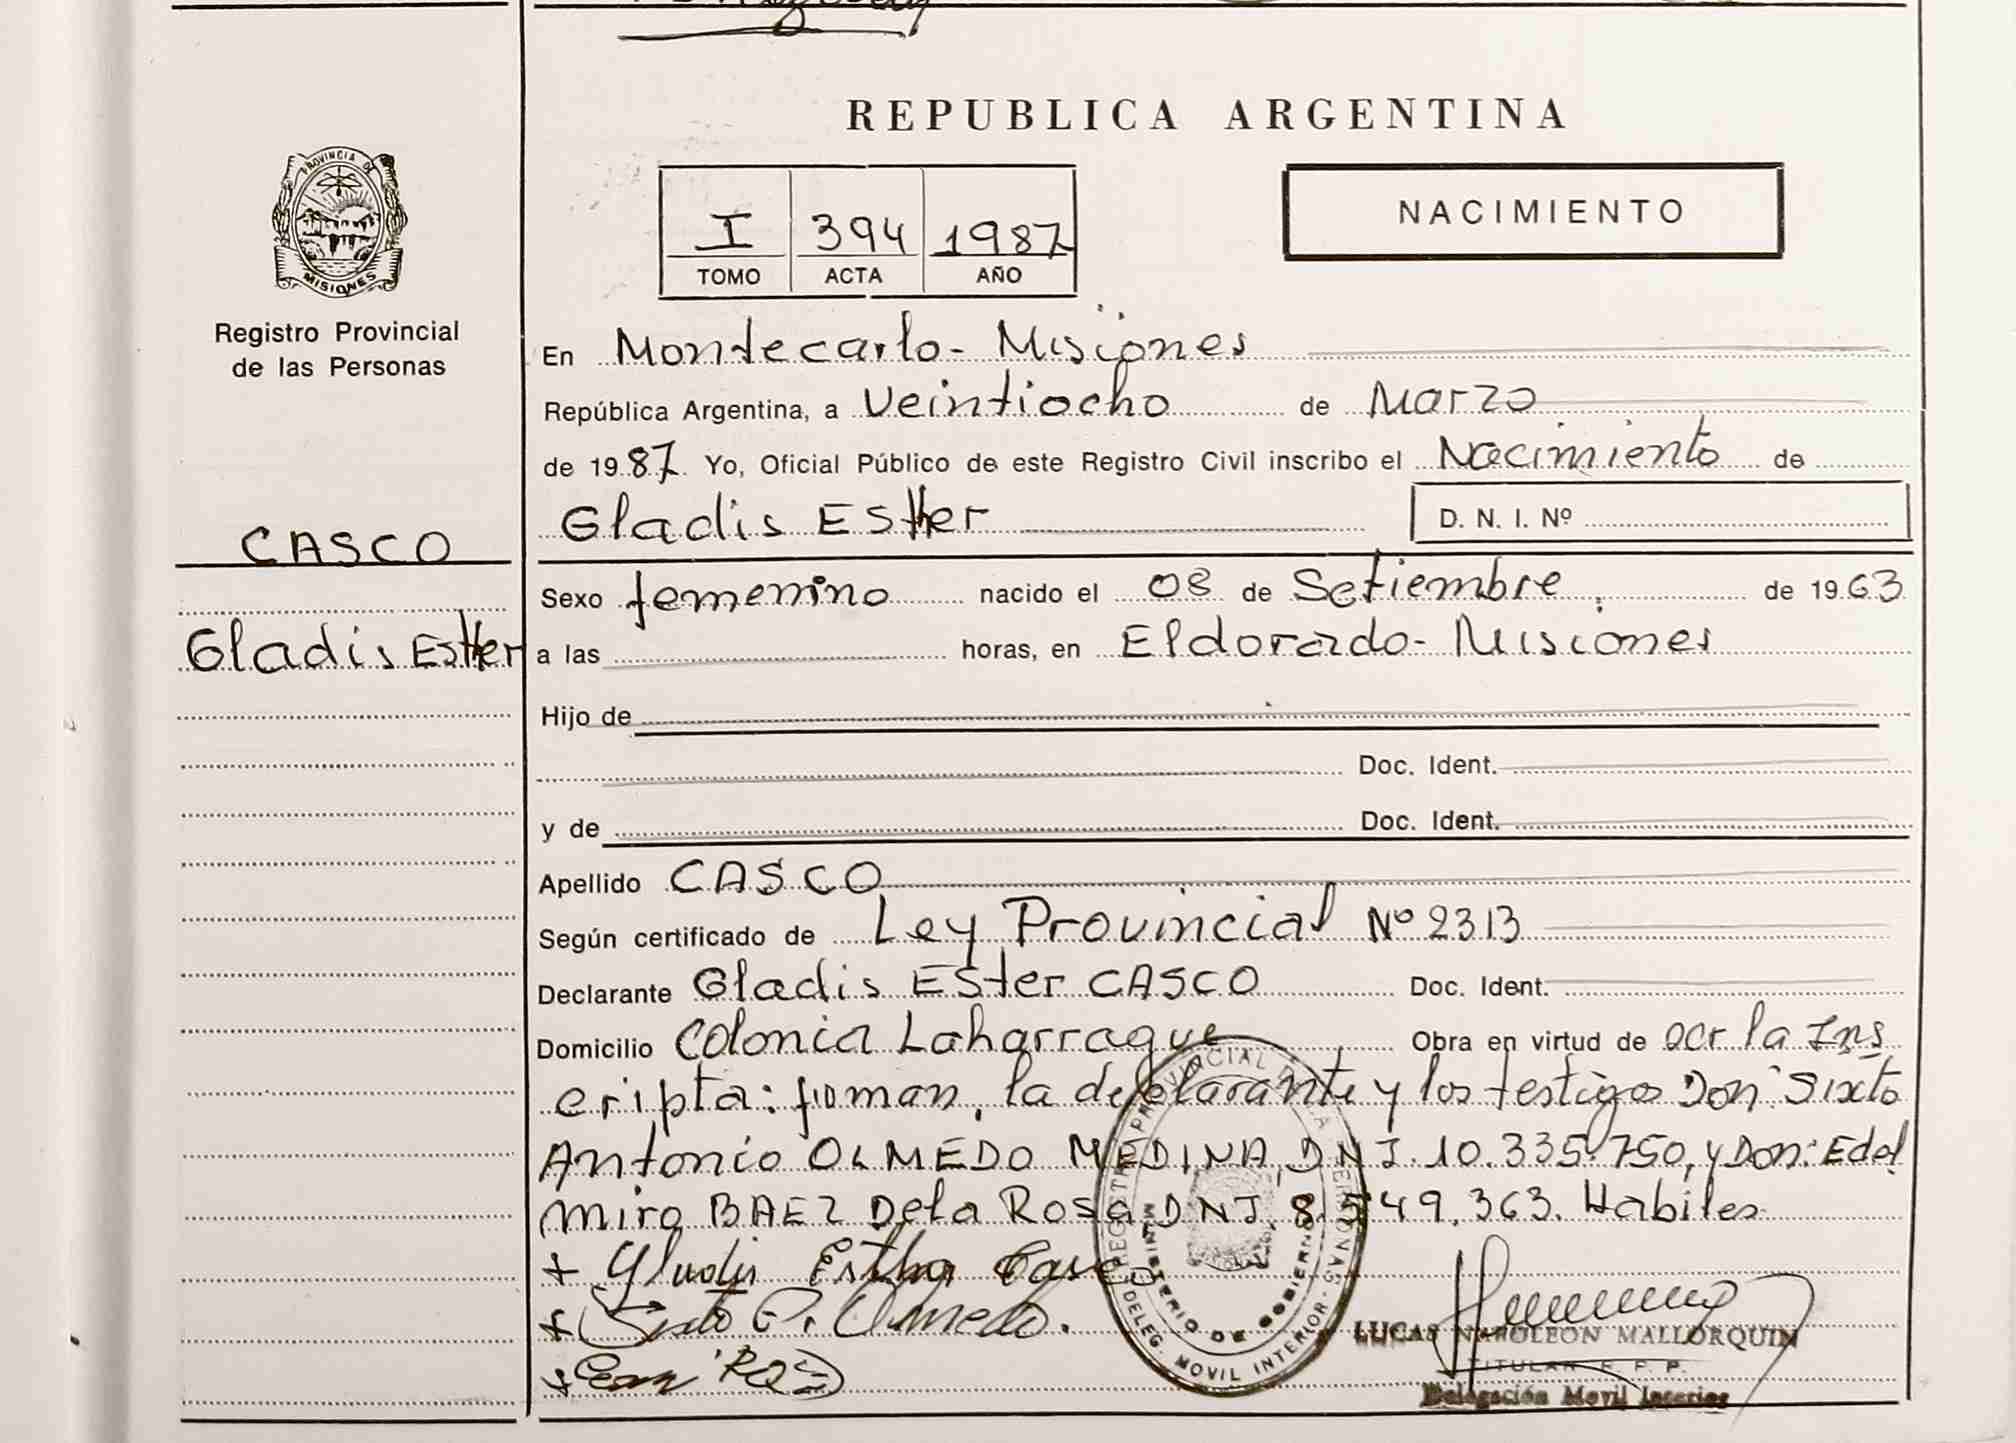 REPUBLICA ARGENTINA
PROVINCIA DE
MISIONES
Registro Provincial
de las Personas
I 394 1987
TOMO ACTA AÑO
NACIMIENTO
En Montecarlo - Misiones
República Argentina, a Veintiocho de Marzo
de 1987. Yo, Oficial Público de este Registro Civil inscribo el Nacimiento de
Gladis Esther D. N. I. Nº
CASCO
Gladis Esther
Sexo femenino nacido el 08 de Setiembre de 1963
a las horas, en Eldorado - Misiones
Hijo de
Doc. Ident.
y de Doc. Ident.
Apellido CASCO
Según certificado de Ley Provincial Nº 2313
Declarante Gladis Ester CASCO Doc. Ident.
Domicilio Colonia Laharrague Obra en virtud de ocr la Ins
cripta: firman, la declarante y los testigos Don: Sixto
Antonio OLMEDO MEDINA, DNI. 10.335.750, y Don: Edel
miro BAEZ De la Rosa DNI. 8.549.363. Habiles
+ Gladis Esther Casco
+ Sixto A. Olmedo.
REGISTRO PROVINCIAL DE LAS PERSONAS
MINISTERIO DE GOBIERNO
DELEG. MOVIL INTERIOR
LUCAS NAPOLEON MALLORQUIN
TITULAR F. P. P.
Delegación Movil Interior